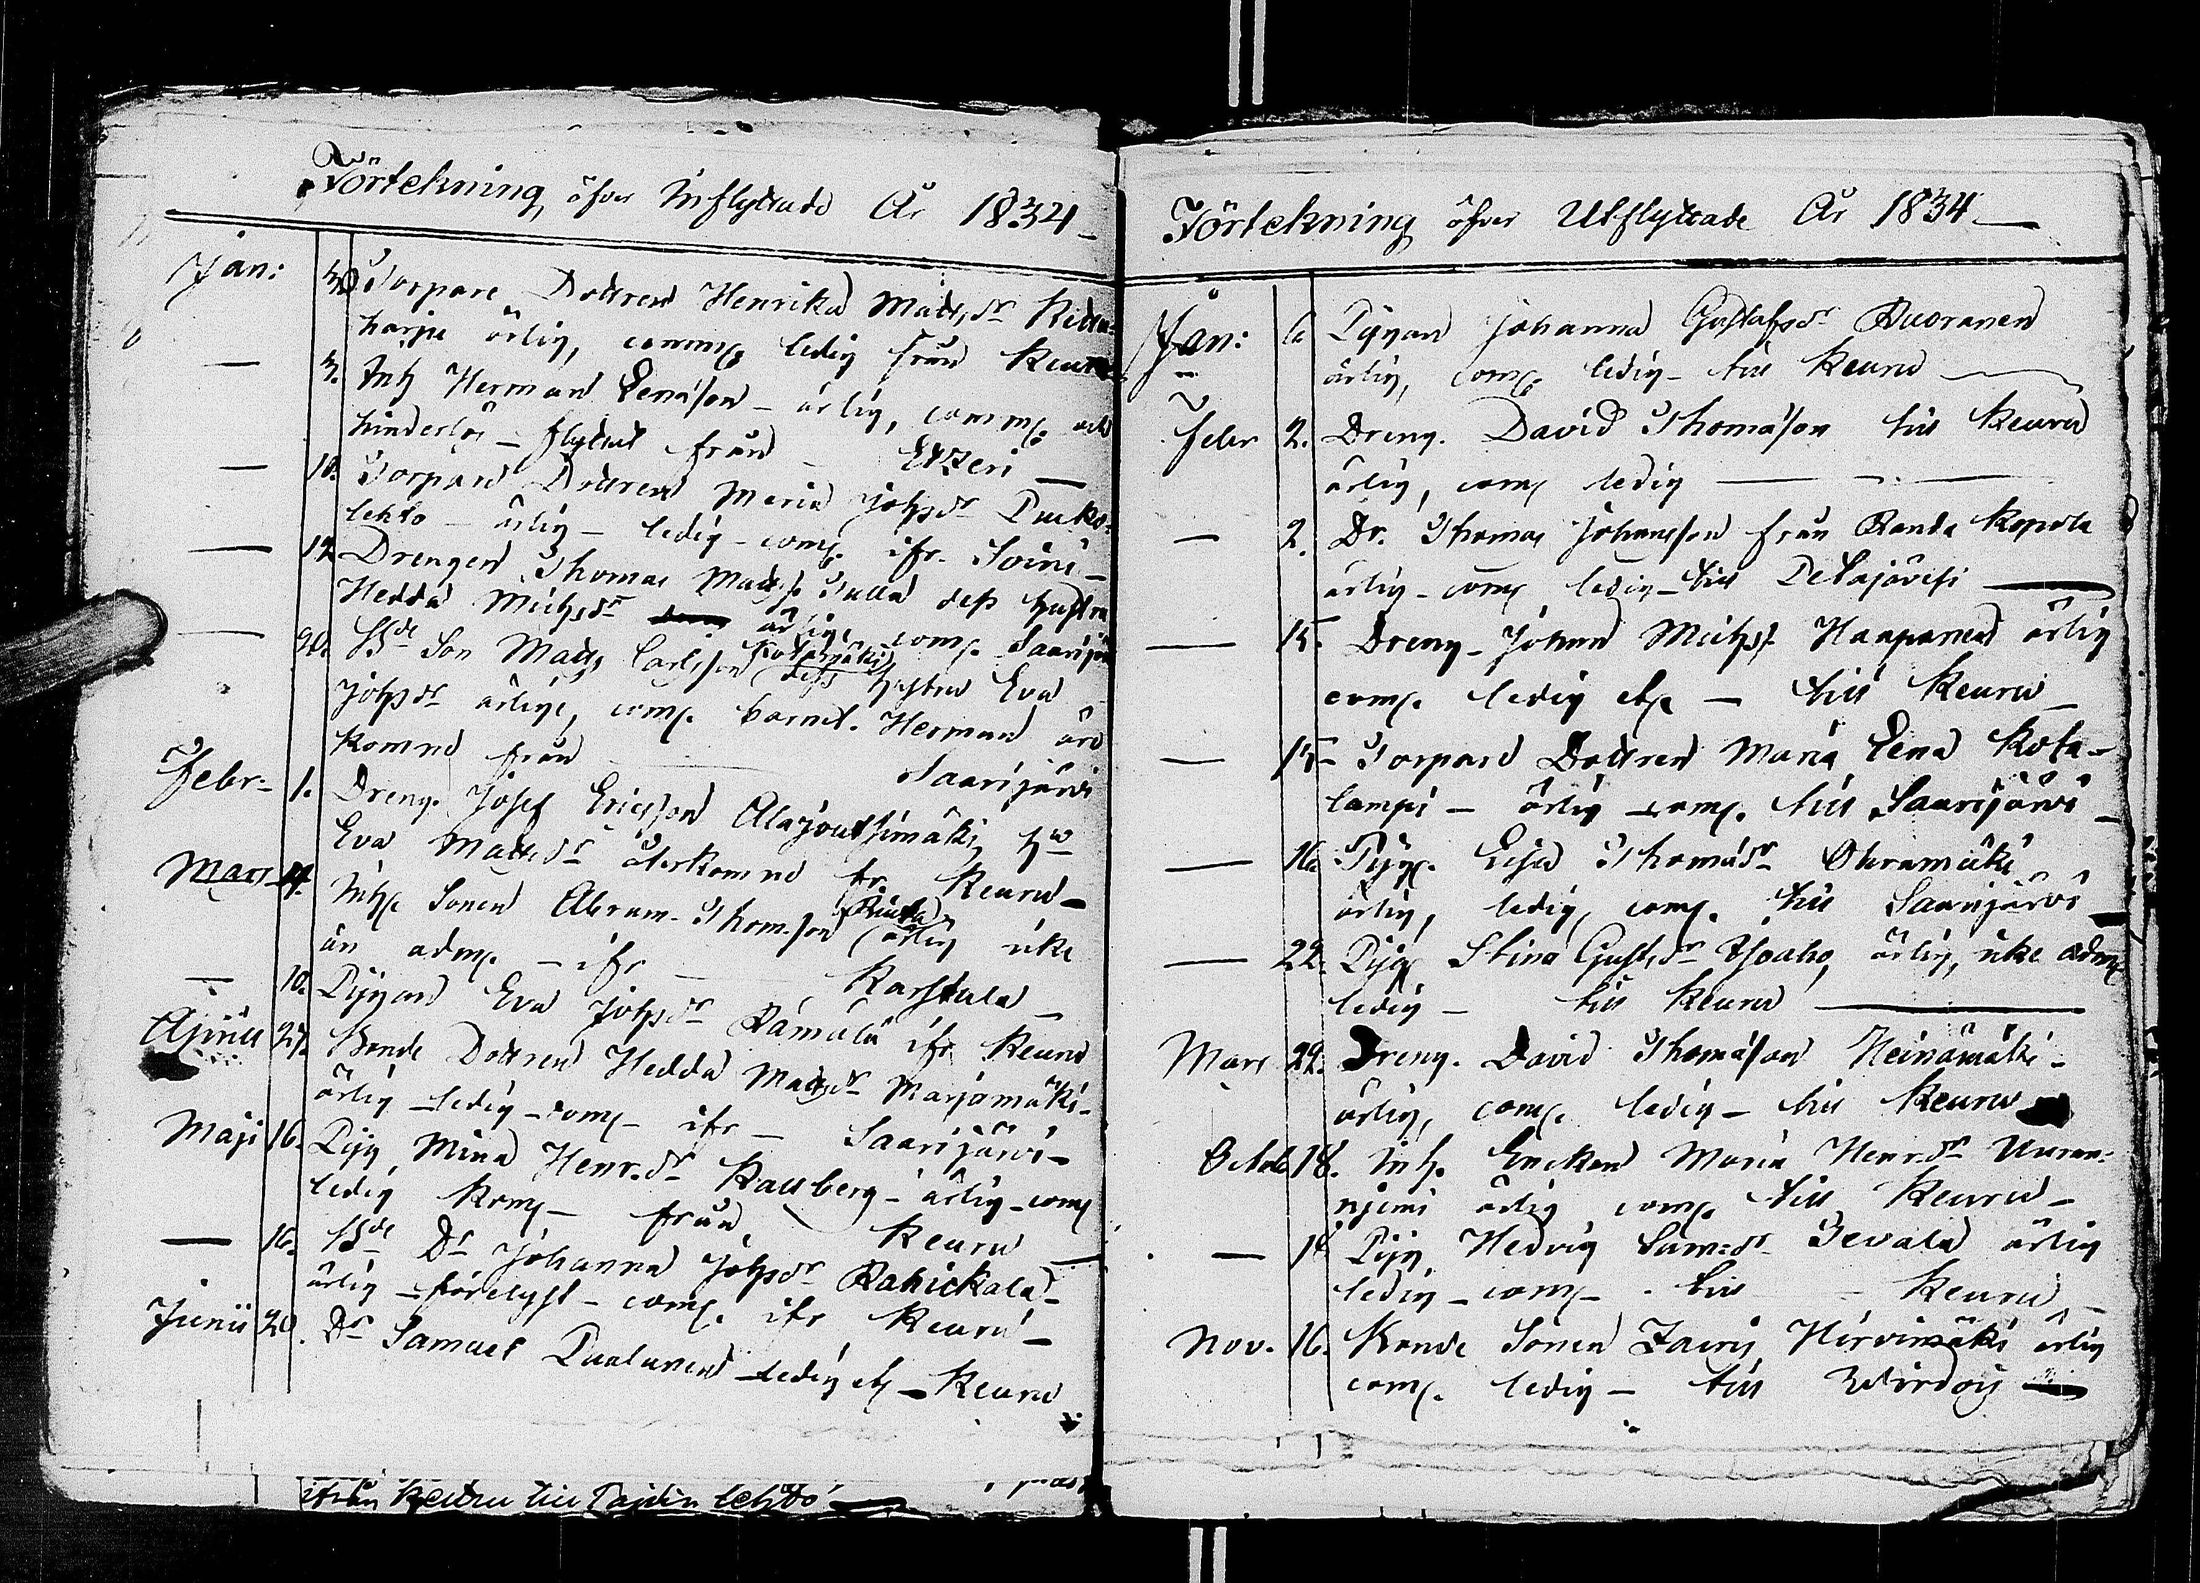 Förtekning öfver Inflyttade År 1834
Jan: 3. Torpare Dottren Henrika Mattsdr
harju ärlig, comm. ledig från Keuru
— 3. Inh Herman Lenasson - ärlig, comm. och
hinderlös - flyttat från Etzeri
— 10. Torpare Dottren Maria Johsdr
lehto - ärlig - ledig - com. ifr. Soini
— 12 Drengen Thomas Matts. dess hustru
Hedda Michsdr ärlige com. Saarijär
— 20. Bde Son Matts Carlsson dess hustru Eva
Johsdr ärlige, com. barnet. Herman äro
komne från Saarijärvi
Febr. 1. Dreng. Josef Ericsson Alajoutsimäki hu
Eva Mattsdr återkomne fr. Keuru
Mars 4. Inh Sonen Abram Thomsson ärlig icke
än adm. - ifr Karstula
— 10. Pigan Eva Johsdr Rämälä ifr Keuru
Aprill 27. Bonde Dottren Hedda Mattsdr Marjomäki
ärlig - ledig - com - ifr - Saarijärvi
Maji 16. Pig Mina Henr.dr Kallberg - ärlig - com
ledig kom - från Keuru
— 16. Bde Dr Johanna Johsdr Rahickala
ärlig - förelyst - com. ifr Keuru
Junii 20. Dr Samuel Paalanen ledig etc - Keuru
ifrån Keuru till lehto
Förtekning öfver Utflyttade År 1834
Jan: 6 Pigan Johanna Gustafsdr Ruoranen
ärlig, com. ledig - till Keuru
Febr 2. Dreng. David Thomasson till Keuru
ärlig, com ledig
— 2. Dr. Thomas Johansson från Randa Kopola
ärlig - com ledig - till Petäjävesi
— 15. Dreng Johan Michss. Haapanen ärlig
com. ledig etc - till Keuru
— 15 Torpare Dottren Maria Lena Kota-
lampi - ärlig - com. till Saarijärvi
— 16. Pig. Thomasdr Oharamäki
ärlig, ledig, com. till Saarijärvi
— 22. Pig Stina Gustsdr Isoaho, ärlig, icke adm
ledig - till Keuru
Mars 22. Dreng. David Thomasson Heinämäki
ärlig, com. ledig - till Keuru
Octob 18. Inh. Enckan Maria Henr.dr Uuran-
njemi ärlig com. till Keuru
— 18 Pig Hedvig Sam:dr Sevala ärlig
ledig - com - till Keuru
Nov. 16. Bonde Sonen Hirvimäki ärlig
com. ledig - till Wirdois